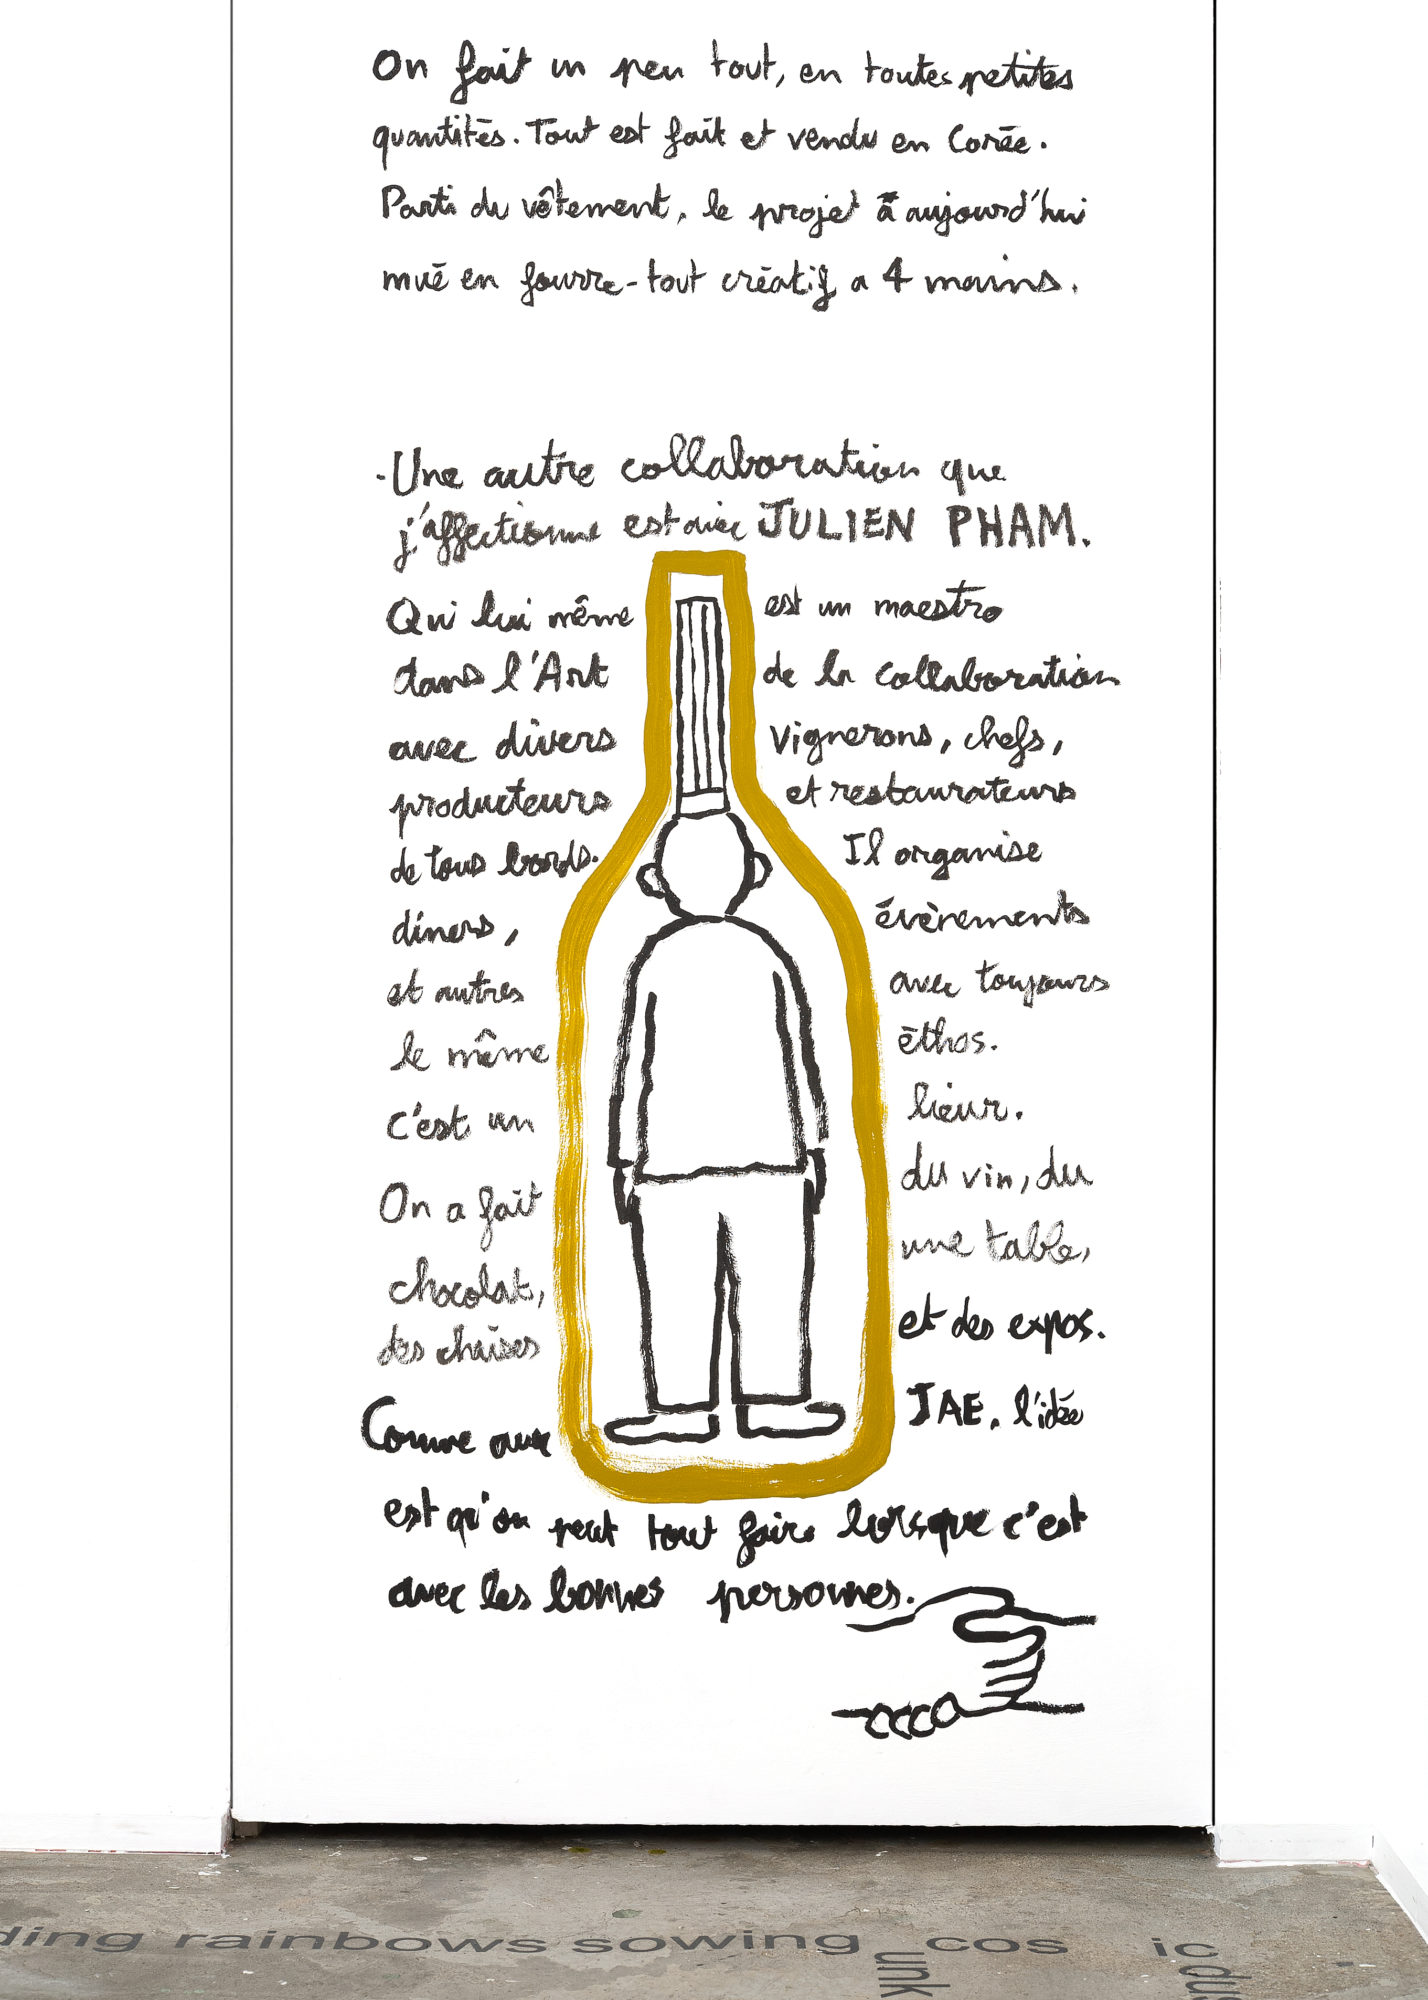 On fait un peu tout, en toutes petites
quantités. Tout est fait et vendu en Corée.
Parti du vêtement, le projet a aujourd'hui
mué en fourre-tout créatif a 4 mains.
·Une autre collaboration que
j'affectionne est avec JULIEN PHAM.
Qui lui même est un maestro
dans l'Art de la collaboration
avec divers vignerons, chefs,
producteurs et restaurateurs
de tous bords. Il organise
diners, évènements
et autres avec toujours
le même éthos.
c'est un lieur.
On a fait du vin, du
chocolat, une table,
des chaises et des expos.
Comme avec JAE, l'idée
est qu'on peut tout faire lorsque c'est
avec les bonnes personnes.
ding rainbows sowing cos ic
unk dus